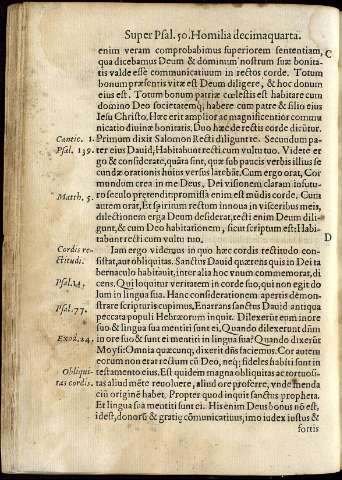 Super Psal. 50. Homilia decimaquarta.
enim veram comprobabimus superiorem sententiam, C
qua dicebamus Deum & dominum nostrum suæ bonita-
tis valde esse communicatiuum in rectos corde. Totum
bonum præsentis vitæ est Deum diligere, & hoc donum
eius est. Totum bonum patriæ cœlestis est habitare cum
domino Deo societatemq́; habere cum patre & filio eius
Iesu Christo, Hæc erit amplior ac magnificentior commu
nicatio diuinæ bonitatis. Duo hæc de rectis corde dicũtur.
Cantic. 1. Primum dixit Salomon Recti diligunt te. Secundum pa-
Psal. 139. ter eius Dauid, Habitabunt recti cum vultu tuo. Videte er
go & considerate, quãta sint, quæ sub paucis verbis illius se
cundæ orationis huius versus latebãt. Cum ergo orat, Cor
mundum crea in me Deus, Dei visionem claram in futu-
Matth. 5. ro seculo prætendit: promissa enim est mũdis corde. Cum
autem orat, Et spiritum rectum innoua in visceribus meis,
dilectionem erga Deum desiderat, recti enim Deum dili
gunt, & cum Deo habitationem, sicut scriptum est: Habi-
tabunt recti cum vultu tuo, D
Cordis re- Iam ergo videmus in nuo hæc cordis rectitudo con-
ctitudi. sistat, aut obliquitas. Sanctus Dauid quærens quis in Dei ta
bernaculo habitauit, inter alia hoc vnum commemorat, di
Psal. 14. cens. Qui loquitur veritatem in corde suo, qui non egit do
lum in lingua sua. Hanc considerationem apertis demon-
strare scripturis cupimus. Enarrans sanctus Dauid antiqua
Psal. 77. peccata populi Hebræorum inquit. Dilexerũt eum in ore
suo & lingua sua mentiti sunt ei. Quando dilexerunt dũm
Exod. 24. in ore suo & sunt ei mentiti in lingua sua? Quando dixerũt
Moysi: Omnia quæcunq; dixerit dñs faciemus. Cor autem
eorum non erat rectum cũ Deo, neq; fideles habiti sunt in
Obliqui- testamento eius. Est quidem magna obliquitas ac tortuosi-
tas cordis. tas aliud mẽte reuoluere, aliud ore proferre, vnde menda
ciũ originẽ habet. Propter quod inquit sanctus propheta.
Et lingua sua mentiti sunt ei. His enim Deus bonus nõ est,
id est, donorũ & gratię cõmunicatiuus, imo iudex iustus &
fortis